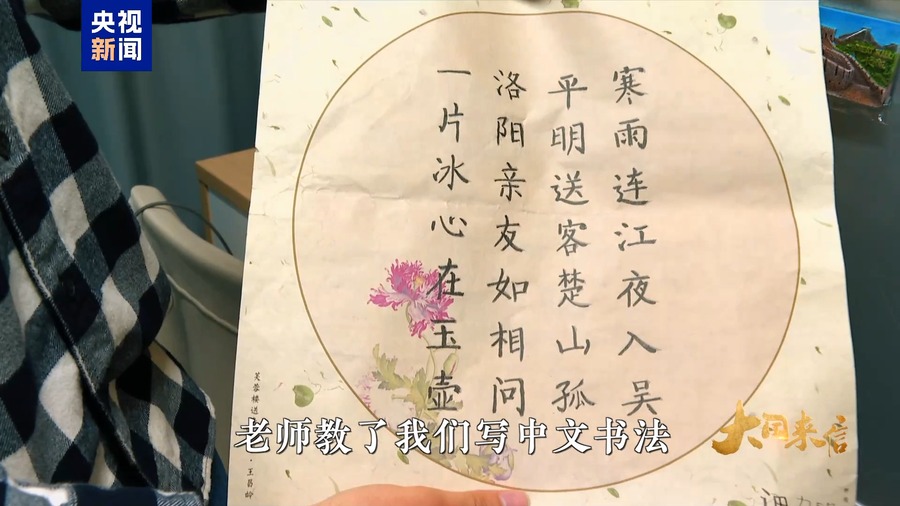 央视
新闻
寒雨连江夜入吴
平明送客楚山孤
洛阳亲友如相问
一片冰心在玉壶
芙蓉楼送
王昌龄
老师教了我们写中文书法
大同来信